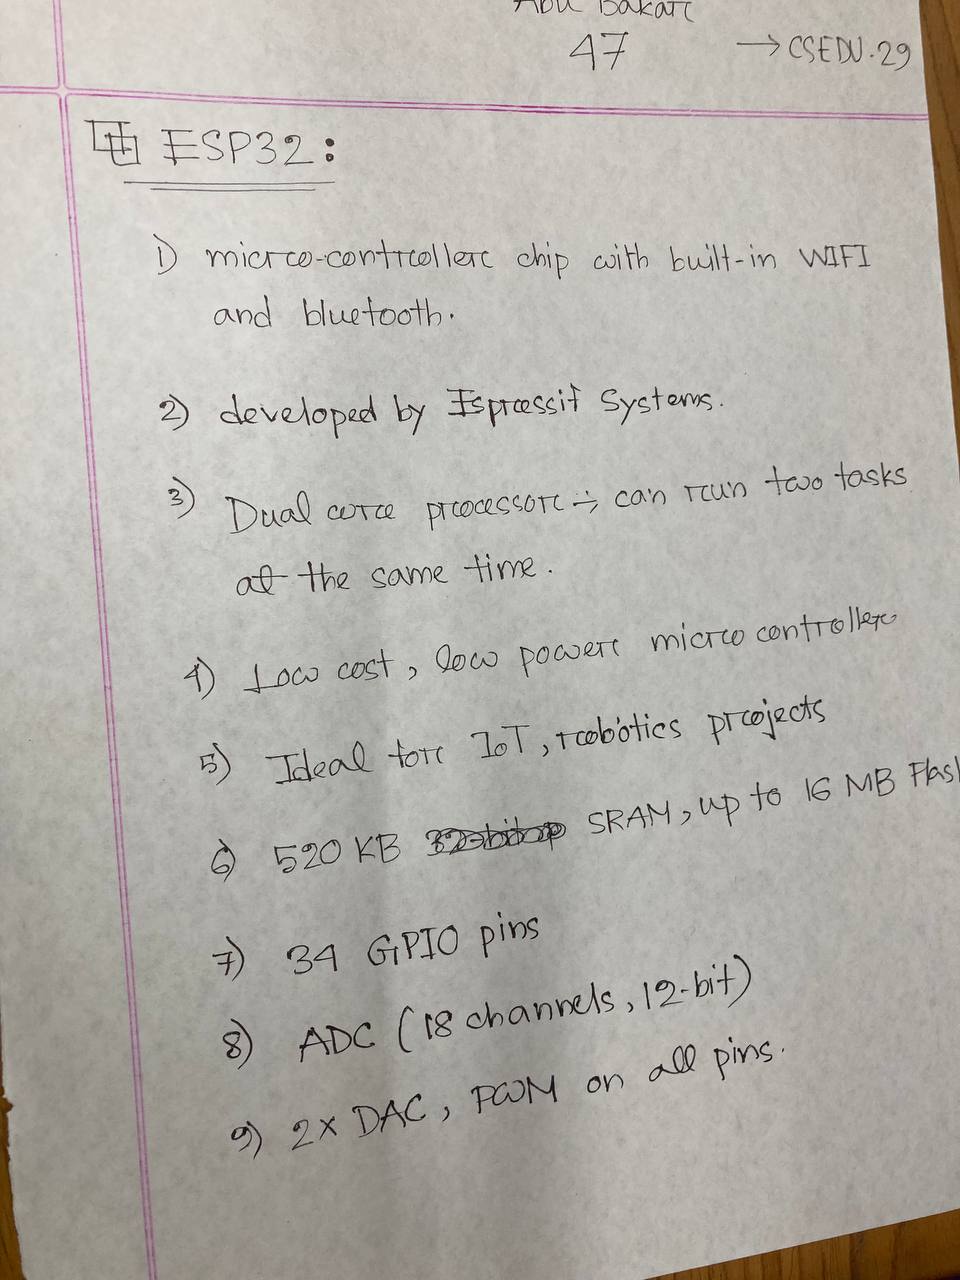 Abu Bakar
47 → CSEDU.29
ESP32:
1) micro-controller chip with built-in WIFI
and bluetooth.
2) developed by Espressif Systems.
3) Dual core processor ÷ can run two tasks
at the same time.
4) Low cost, low power micro controller
5) Ideal for IoT, robotics projects
6) 520 KB SRAM, up to 16 MB Flash
7) 34 GPIO pins
8) ADC (18 channels, 12-bit)
9) 2x DAC, PWM on all pins.